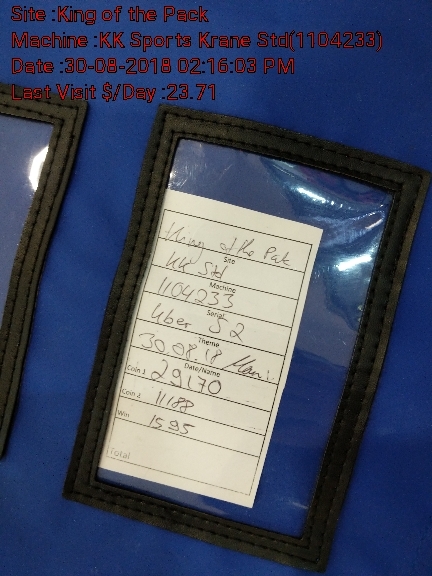 Site :King of the Pack
Machine :KK Sports Krane Std(1104233)
Date :30-08-2018 02:16:03 PM
Last Visit $/Day :23.71
King of the Pak
Site
KK Std
Machine
1104233
Serial
Uber S2
Theme
30.08.18
Date/Name
Coin 1 29170
Coin 2 11188
Win 1595
Total